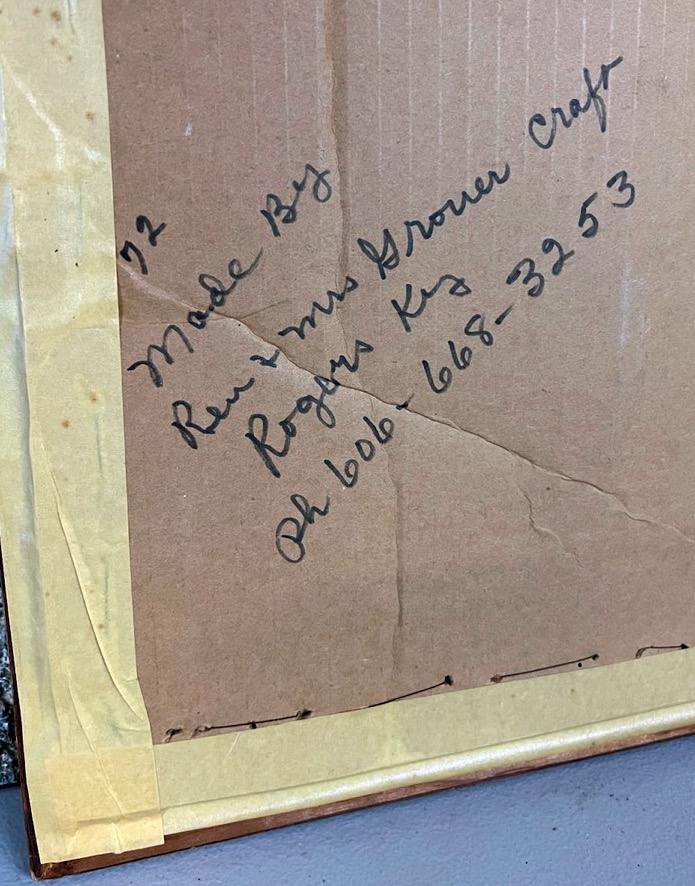 72
Made By
Rev & Mrs Grover Craft
Rogers Ky
Ph 606-668-3253